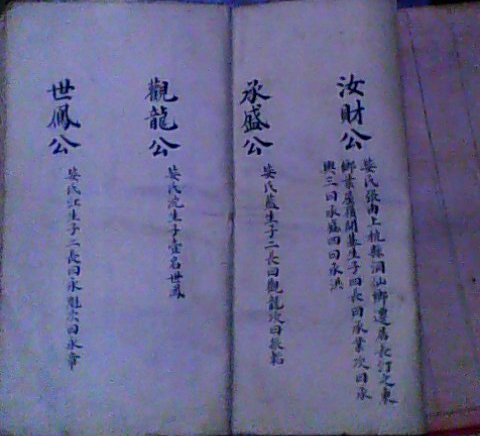 汝財公
娶氏張由上杭縣洞仙鄉遷居長汀之東
鄉葉屋須開基生子四長曰承業次曰承
興三曰承盛四曰承洪
承盛公
娶氏藍生子二長曰觀龍次曰
觀龍公
娶氏沈生子壹名世鳳
世鳳公
娶氏江生子二長曰永龍次曰永章